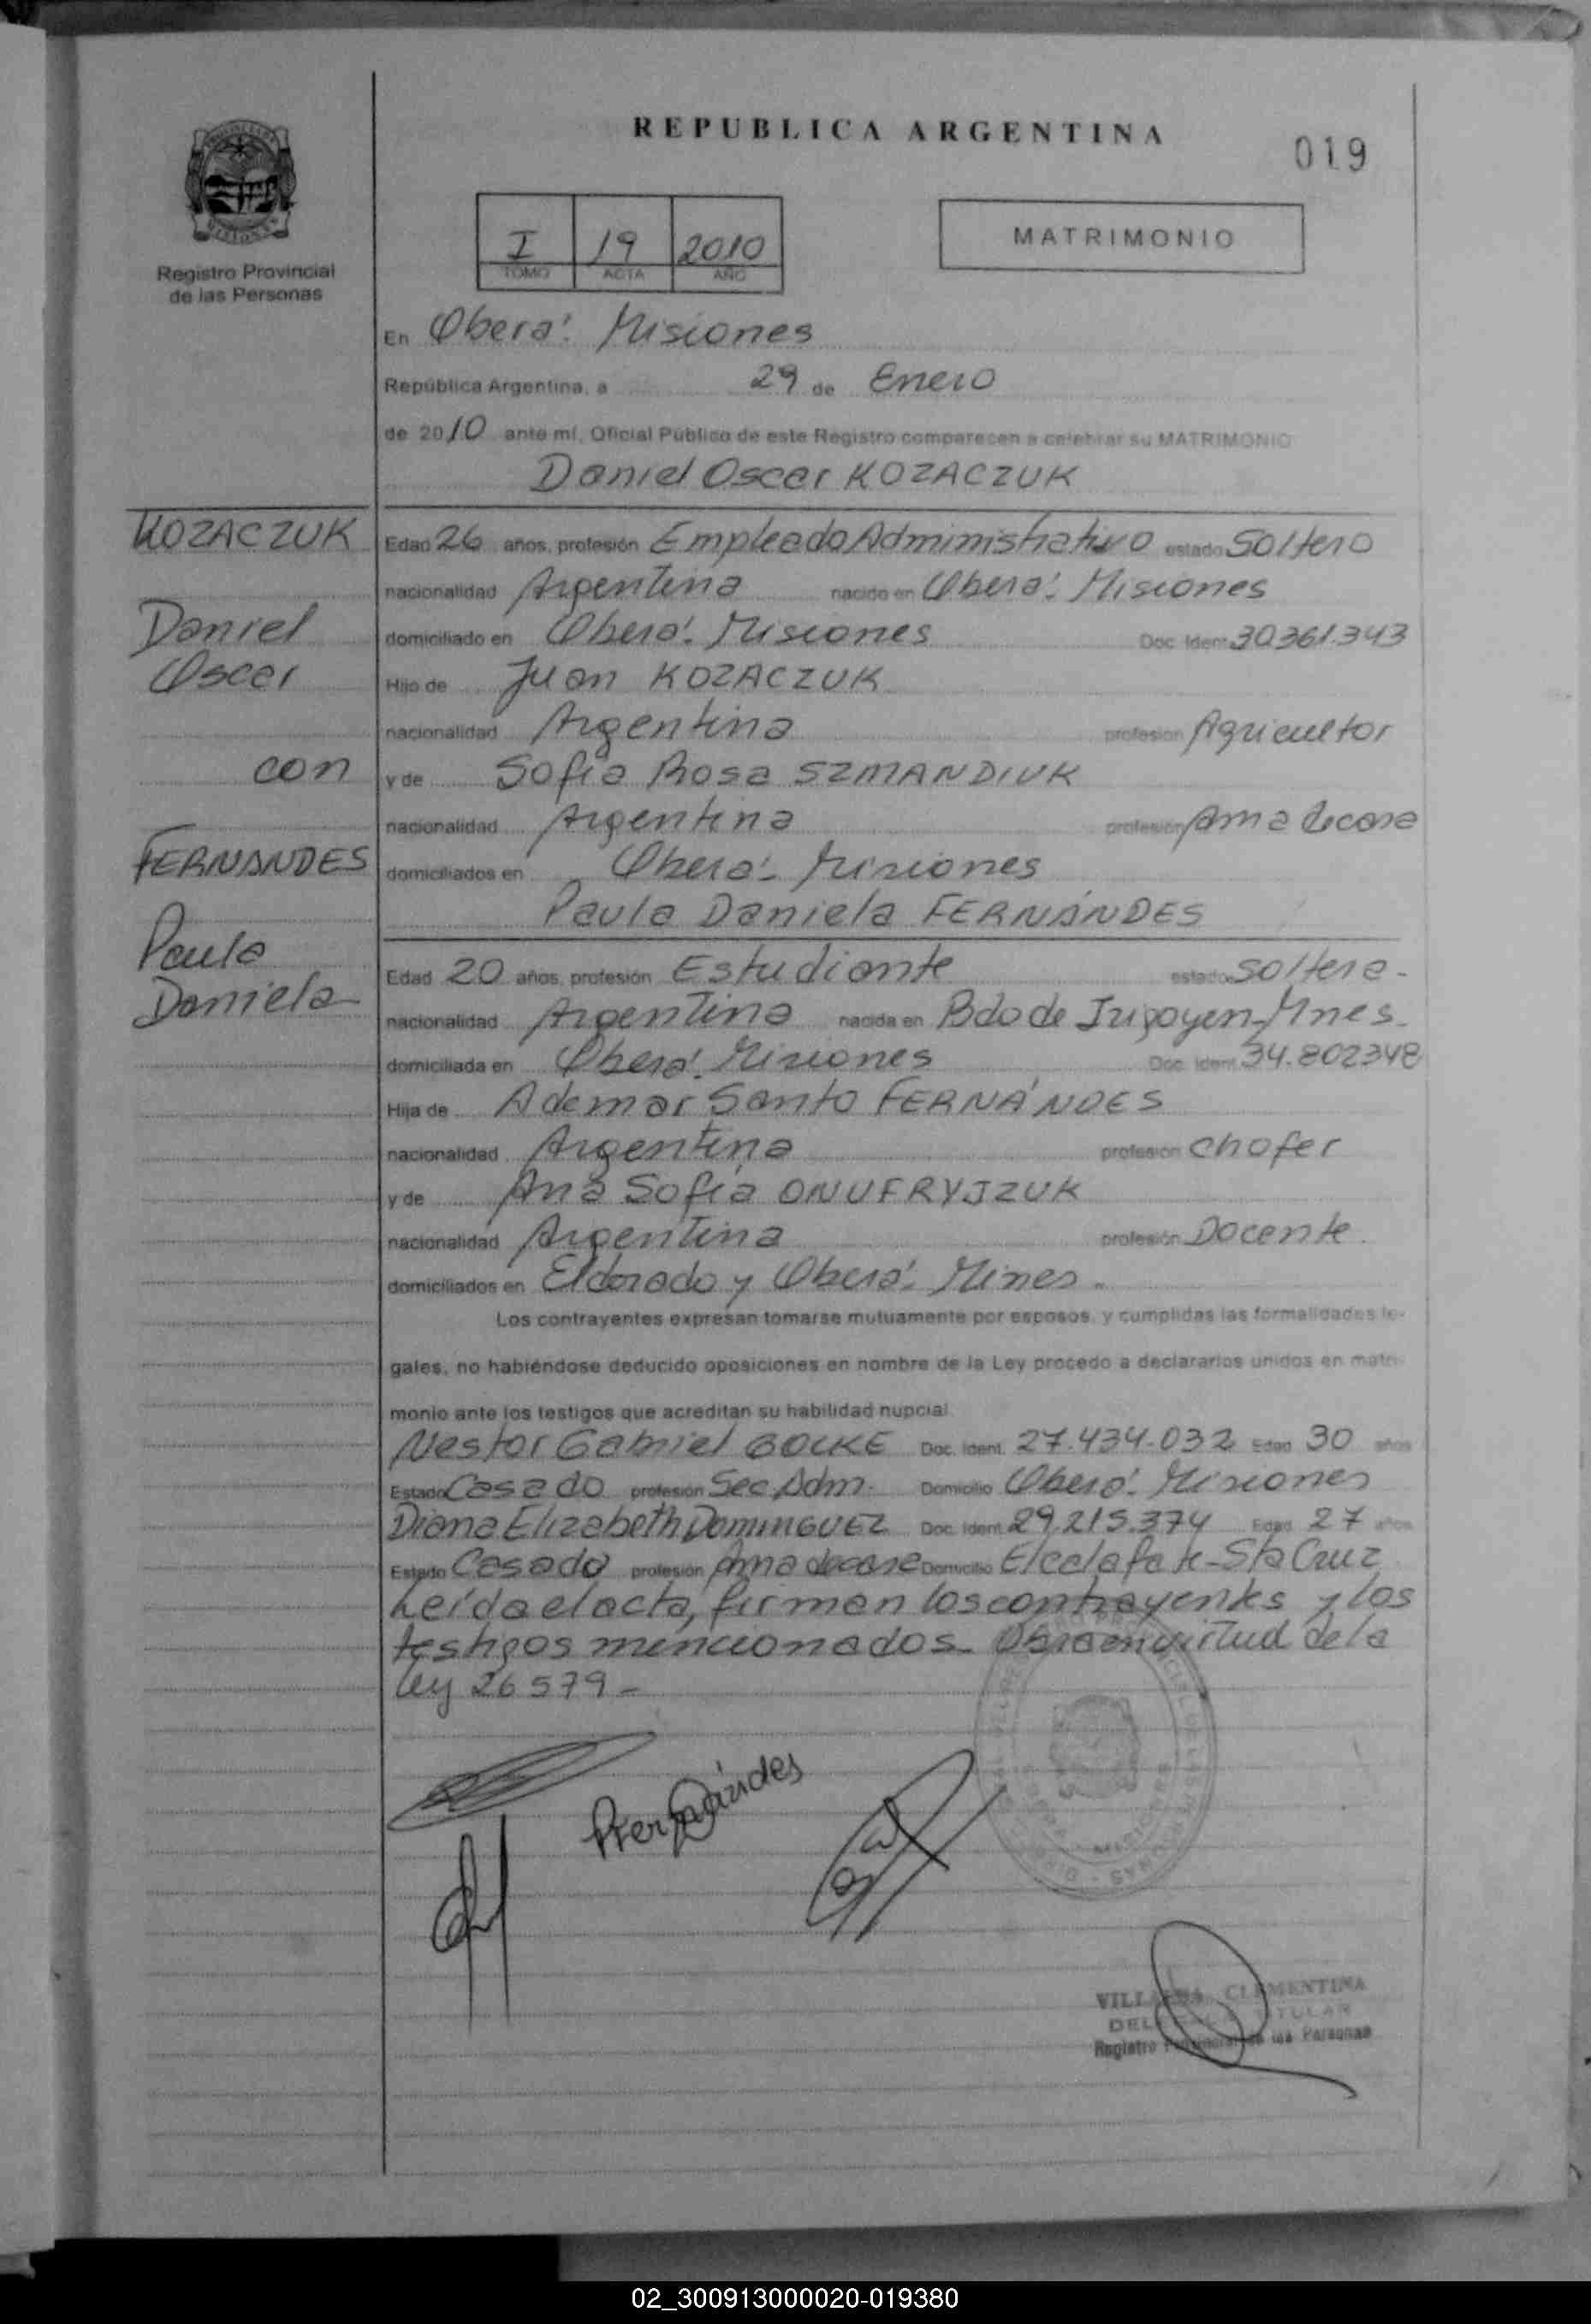 REPUBLICA ARGENTINA
019
I 19 2010
TOMO ACTA AÑO
MATRIMONIO
Registro Provincial
de las Personas
En Oberá: Misiones
República Argentina, a 29 de Enero
de 2010 ante mí, Oficial Público de este Registro comparecen a celebrar su MATRIMONIO
Daniel Oscar KOZACZUK
KOZACZUK
Daniel
Oscar
con
FERNANDES
Paula
Daniela
Edad 26 años, profesión Empleado Administrativo estado Soltero
nacionalidad Argentina nacido en Oberá: Misiones
domiciliado en Oberá: Misiones Doc. Ident. 30.361.343
Hijo de Juan KOZACZUK
nacionalidad Argentina profesión Agricultor
y de Sofia Rosa SZMANDIUK
nacionalidad Argentina profesión Ama de casa
domiciliados en Oberá: Misiones
Paula Daniela FERNÁNDES
Edad 20 años, profesión Estudiante estado soltera-
nacionalidad Argentina nacida en Bdo de Irigoyen-Mnes.
domiciliada en Oberá: Misiones Doc. Ident. 34.802348
Hija de Ademar Santo FERNÁNDES
nacionalidad Argentina profesión chofer
y de Ana Sofía ONUFRYJZUK
nacionalidad Argentina profesión Docente
domiciliados en Eldorado y Oberá: Mines.
Los contrayentes expresan tomarse mutuamente por esposos, y cumplidas las formalidades le-
gales, no habiéndose deducido oposiciones en nombre de la Ley procedo a declararlos unidos en matri-
monio ante los testigos que acreditan su habilidad nupcial.
Nestor Gabriel Doc. Ident. 27.434.032 Edad 30 años
Estado Casado profesión Sec Adm. Domicilio Oberá: Misiones
Diana Elizabeth DOMINGUEZ Doc. Ident. 29.215.374 Edad 27 años
Estado Casado profesión Ama de casa Domicilio El calafate-Sta Cruz
Leída el acta, firman los contrayentes y los
testigos mencionados. Obra en virtud de la
Ley 26579-
Fernándes
CLEMENTINA
TITULAR
Registro Provincial de las Personas
02_300913000020-019380